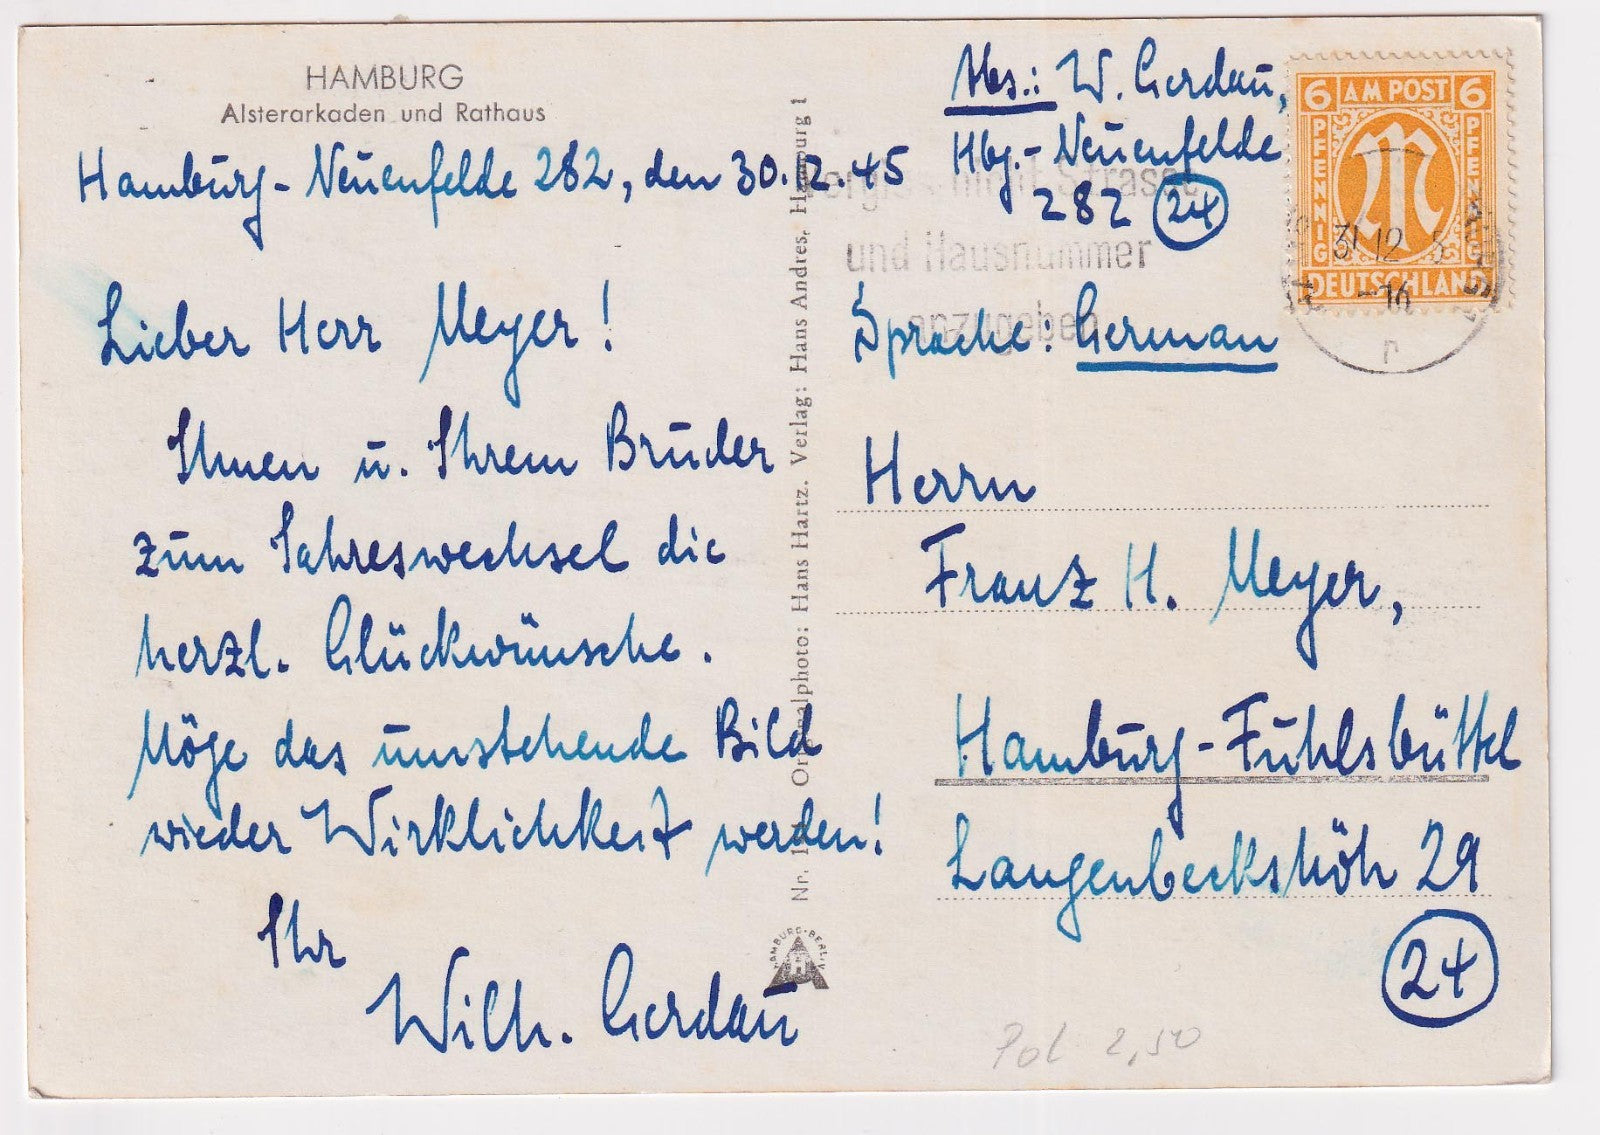 HAMBURG
Alsterarkaden und Rathaus
Hamburg-Neuenfelde 282, den 30.12.45
Lieber Herr Meyer!
Ihnen u. Ihrem Bruder
zum Jahreswechsel die
herzl. Glückwünsche.
Möge das umstehende Bild
wieder Wirklichkeit werden!
Ihr
Wilh. Gerdau
Nr. Originalphoto: Hans Hartz. Verlag: Hans Andres, Hamburg 1
HAMBURG-BERLIN
Abs.: W. Gerdau,
Hbg.-Neuenfelde
282 (24)
6 AM POST 6
PFENNIG PFENNIG
DEUTSCHLAND
31.12
-16
r
nicht Strasse
und Hausnummer
anzugeben
Sprache: German
Herrn
Franz H. Meyer,
Hamburg-Fuhlsbüttel
Langenbeckshöh 29
(24)
Pol 2,50